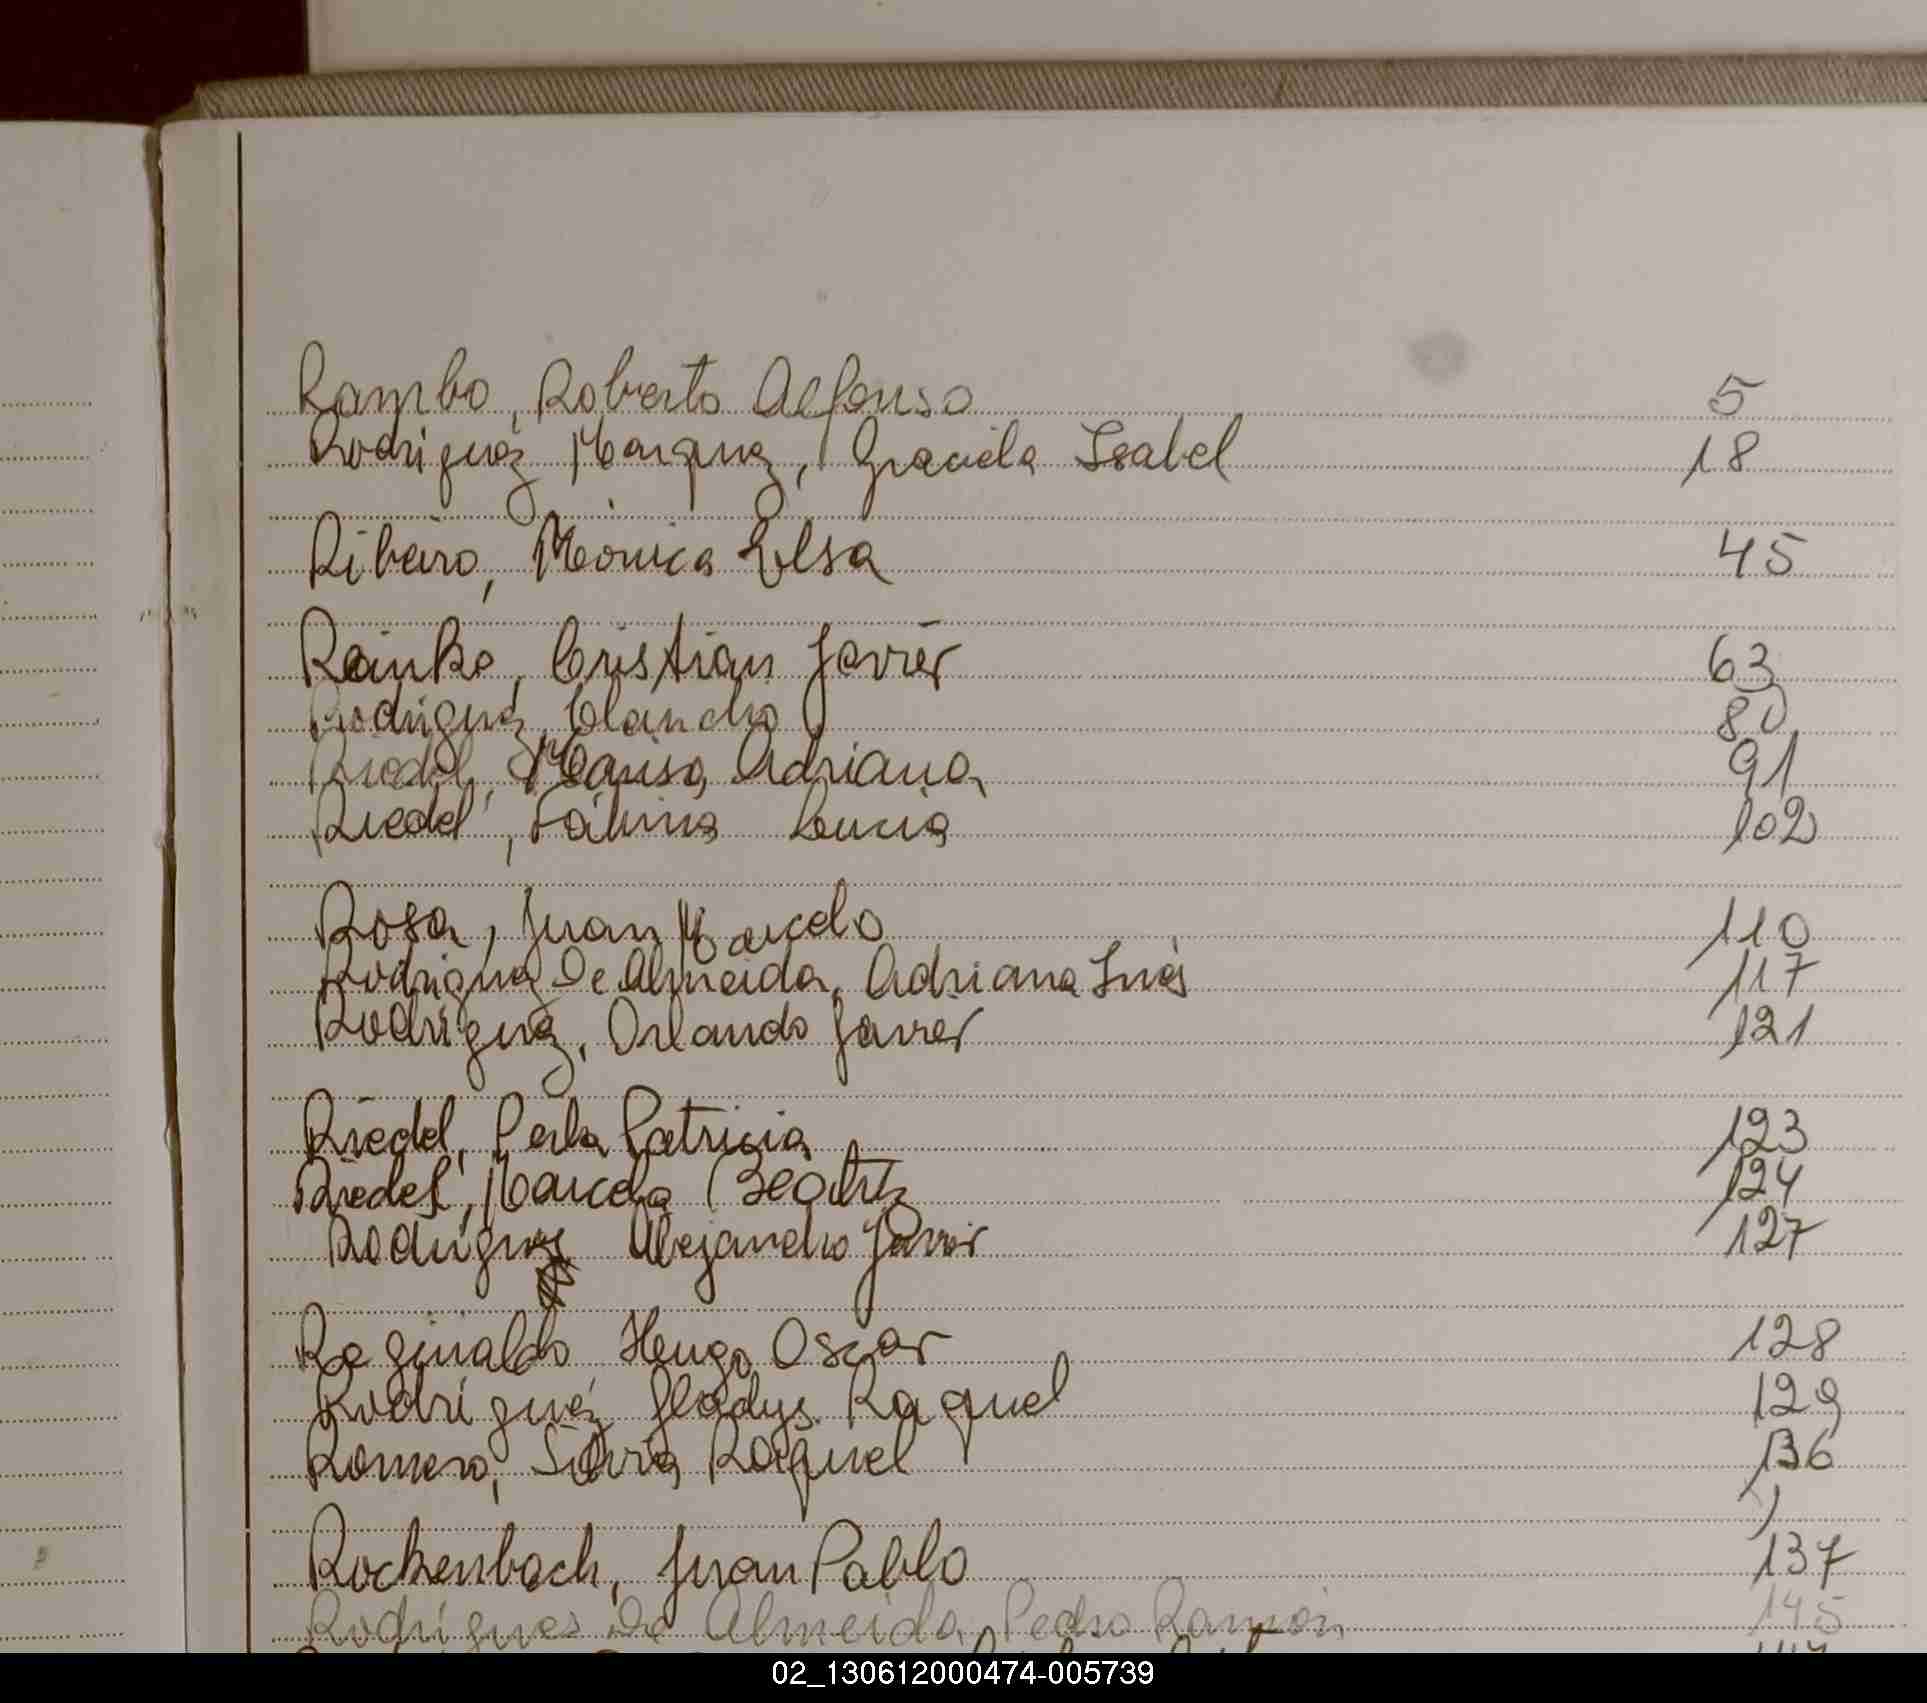 Rambo, Roberto Alfonso 5
Rodriguez Marquez, Graciela Isabel 18
Ribeiro, Mónica Elsa 45
Reinke, Cristian Javier 63
Rodriguez, Claudio 80
Riedel, Marisa Adriana 91
Riedel, Fátima Lucia 102
Rosa, Juan Marcelo 110
Rodriguez De Almeida, Adriana Inés 117
Rodriguez, Orlando Javier 121
Riedel, Perla Patricia 123
Riedel, Marcela Beatriz 124
Rodriguez Alejandro Javier 127
Reginaldo Hugo Oscar 128
Rodríguez Gladys Raquel 129
Romero, Silvia Raquel 136
Rockenbach, Juan Pablo 137
Rodrigues De Almeida, Pedro Ramón 145
02_130612000474-005739